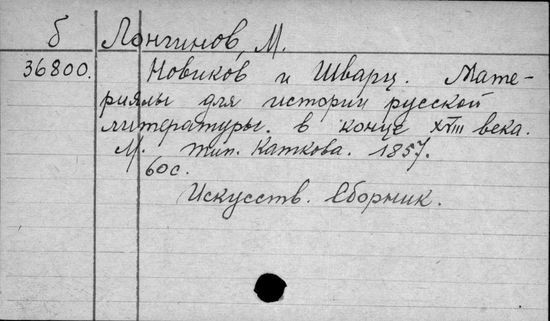 б Лонгинов, М.
36800. Новиков и Шварц. Мате-
риялы для истории русской
литературы. в конце XVIII века.
М. тип. Каткова. 1857.
60с.
Искусств. Сборник.